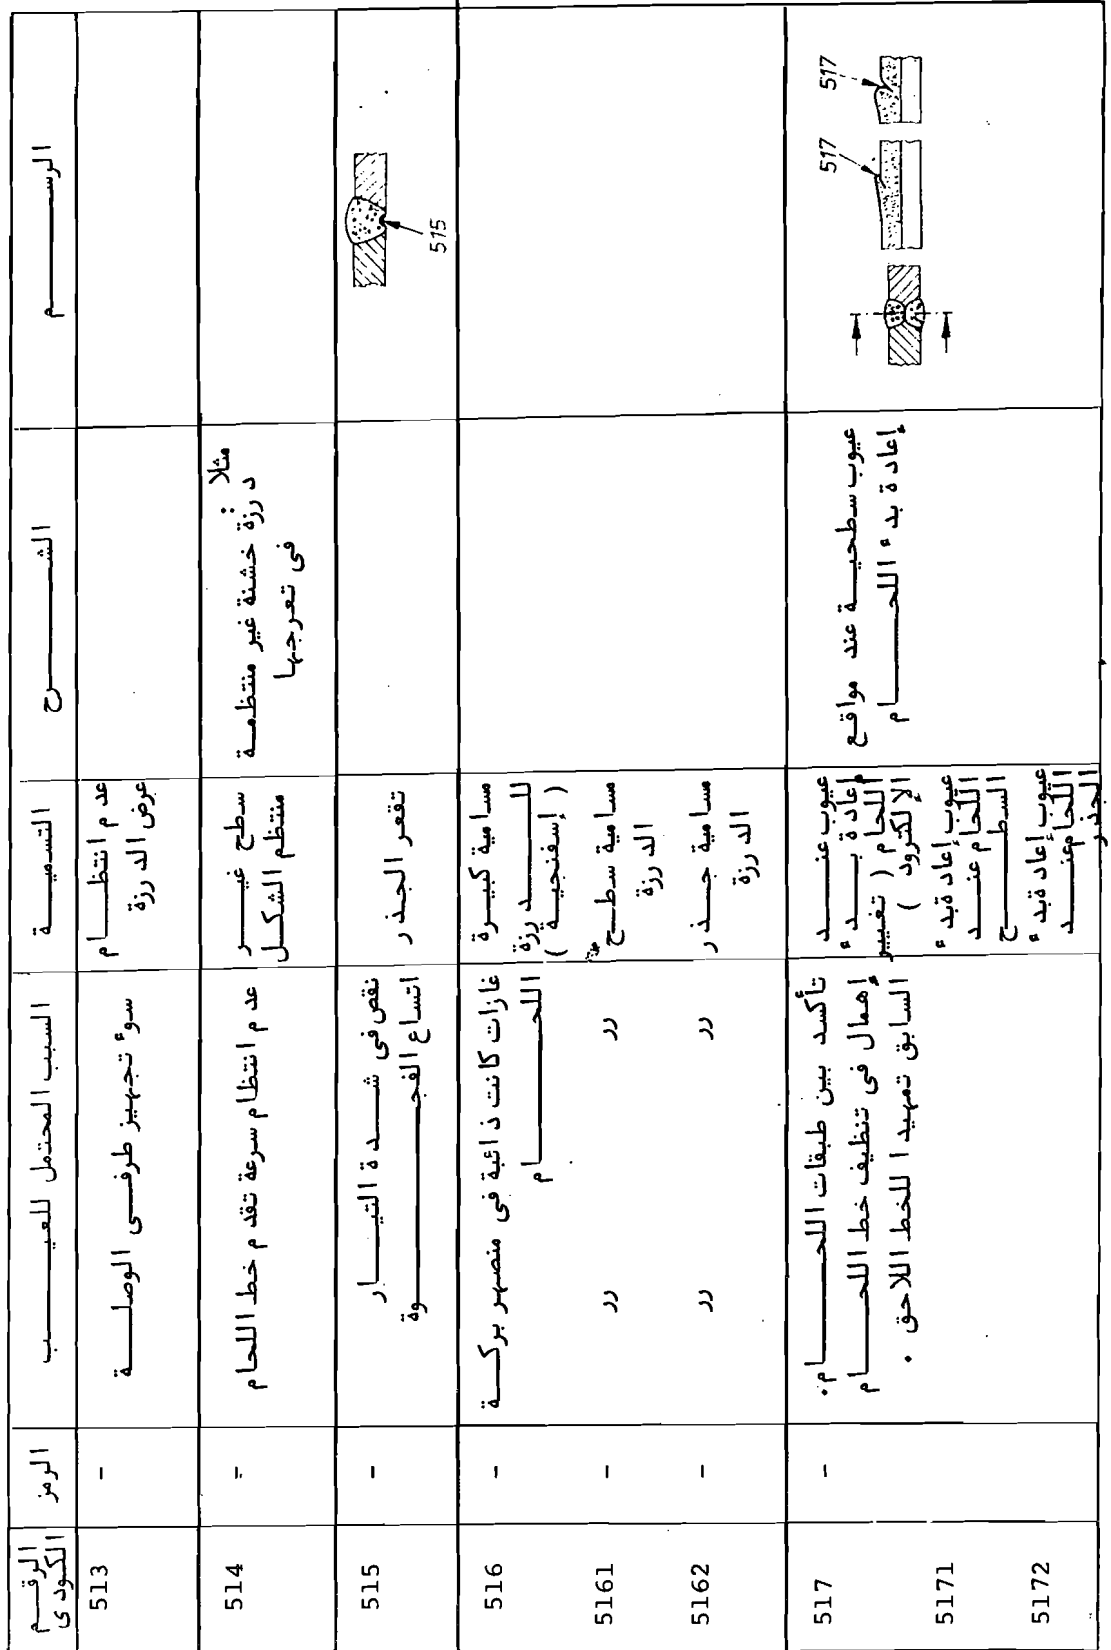 الرقم
الكودى
الرمز
السبب المحتمل للعيب
التسمية
الشرح
الرسم
513
-
سوء تجهيز طرفى الوصلة
عدم انتظام
عرض الدرزة
514
=
عدم انتظام سرعة تقدم خط اللحام
سطح غير
منتظم الشكل
مثلا :
درزة خشنة غير منتظمة
فى تعرجها
515
-
نقص فى شدة التيار
اتساع الفجوة
تقعر الجذر
515
516
-
غازات كانت ذائبة فى منصهر بركة
اللحام
مسامية كبيرة
للدرزة
( إسفنجية )
5161
-
رر
رر
مسامية سطح
الدرزة
5162
-
رر
رر
مسامية جذر
الدرزة
517
-
تأكسد بين طبقات اللحام.
إهمال فى تنظيف خط اللحام
السابق تمهيدا للخط اللاحق .
عيوب عند
إعادة بدء
اللحام ( تغيير
الإلكترود )
عيوب سطحية عند مواقع
إعادة بدء اللحام
517
517
5171
عيوب إعادة بدء
اللحام عند
السطح
5172
عيوب إعادة بدء
اللحام عند
الجذر